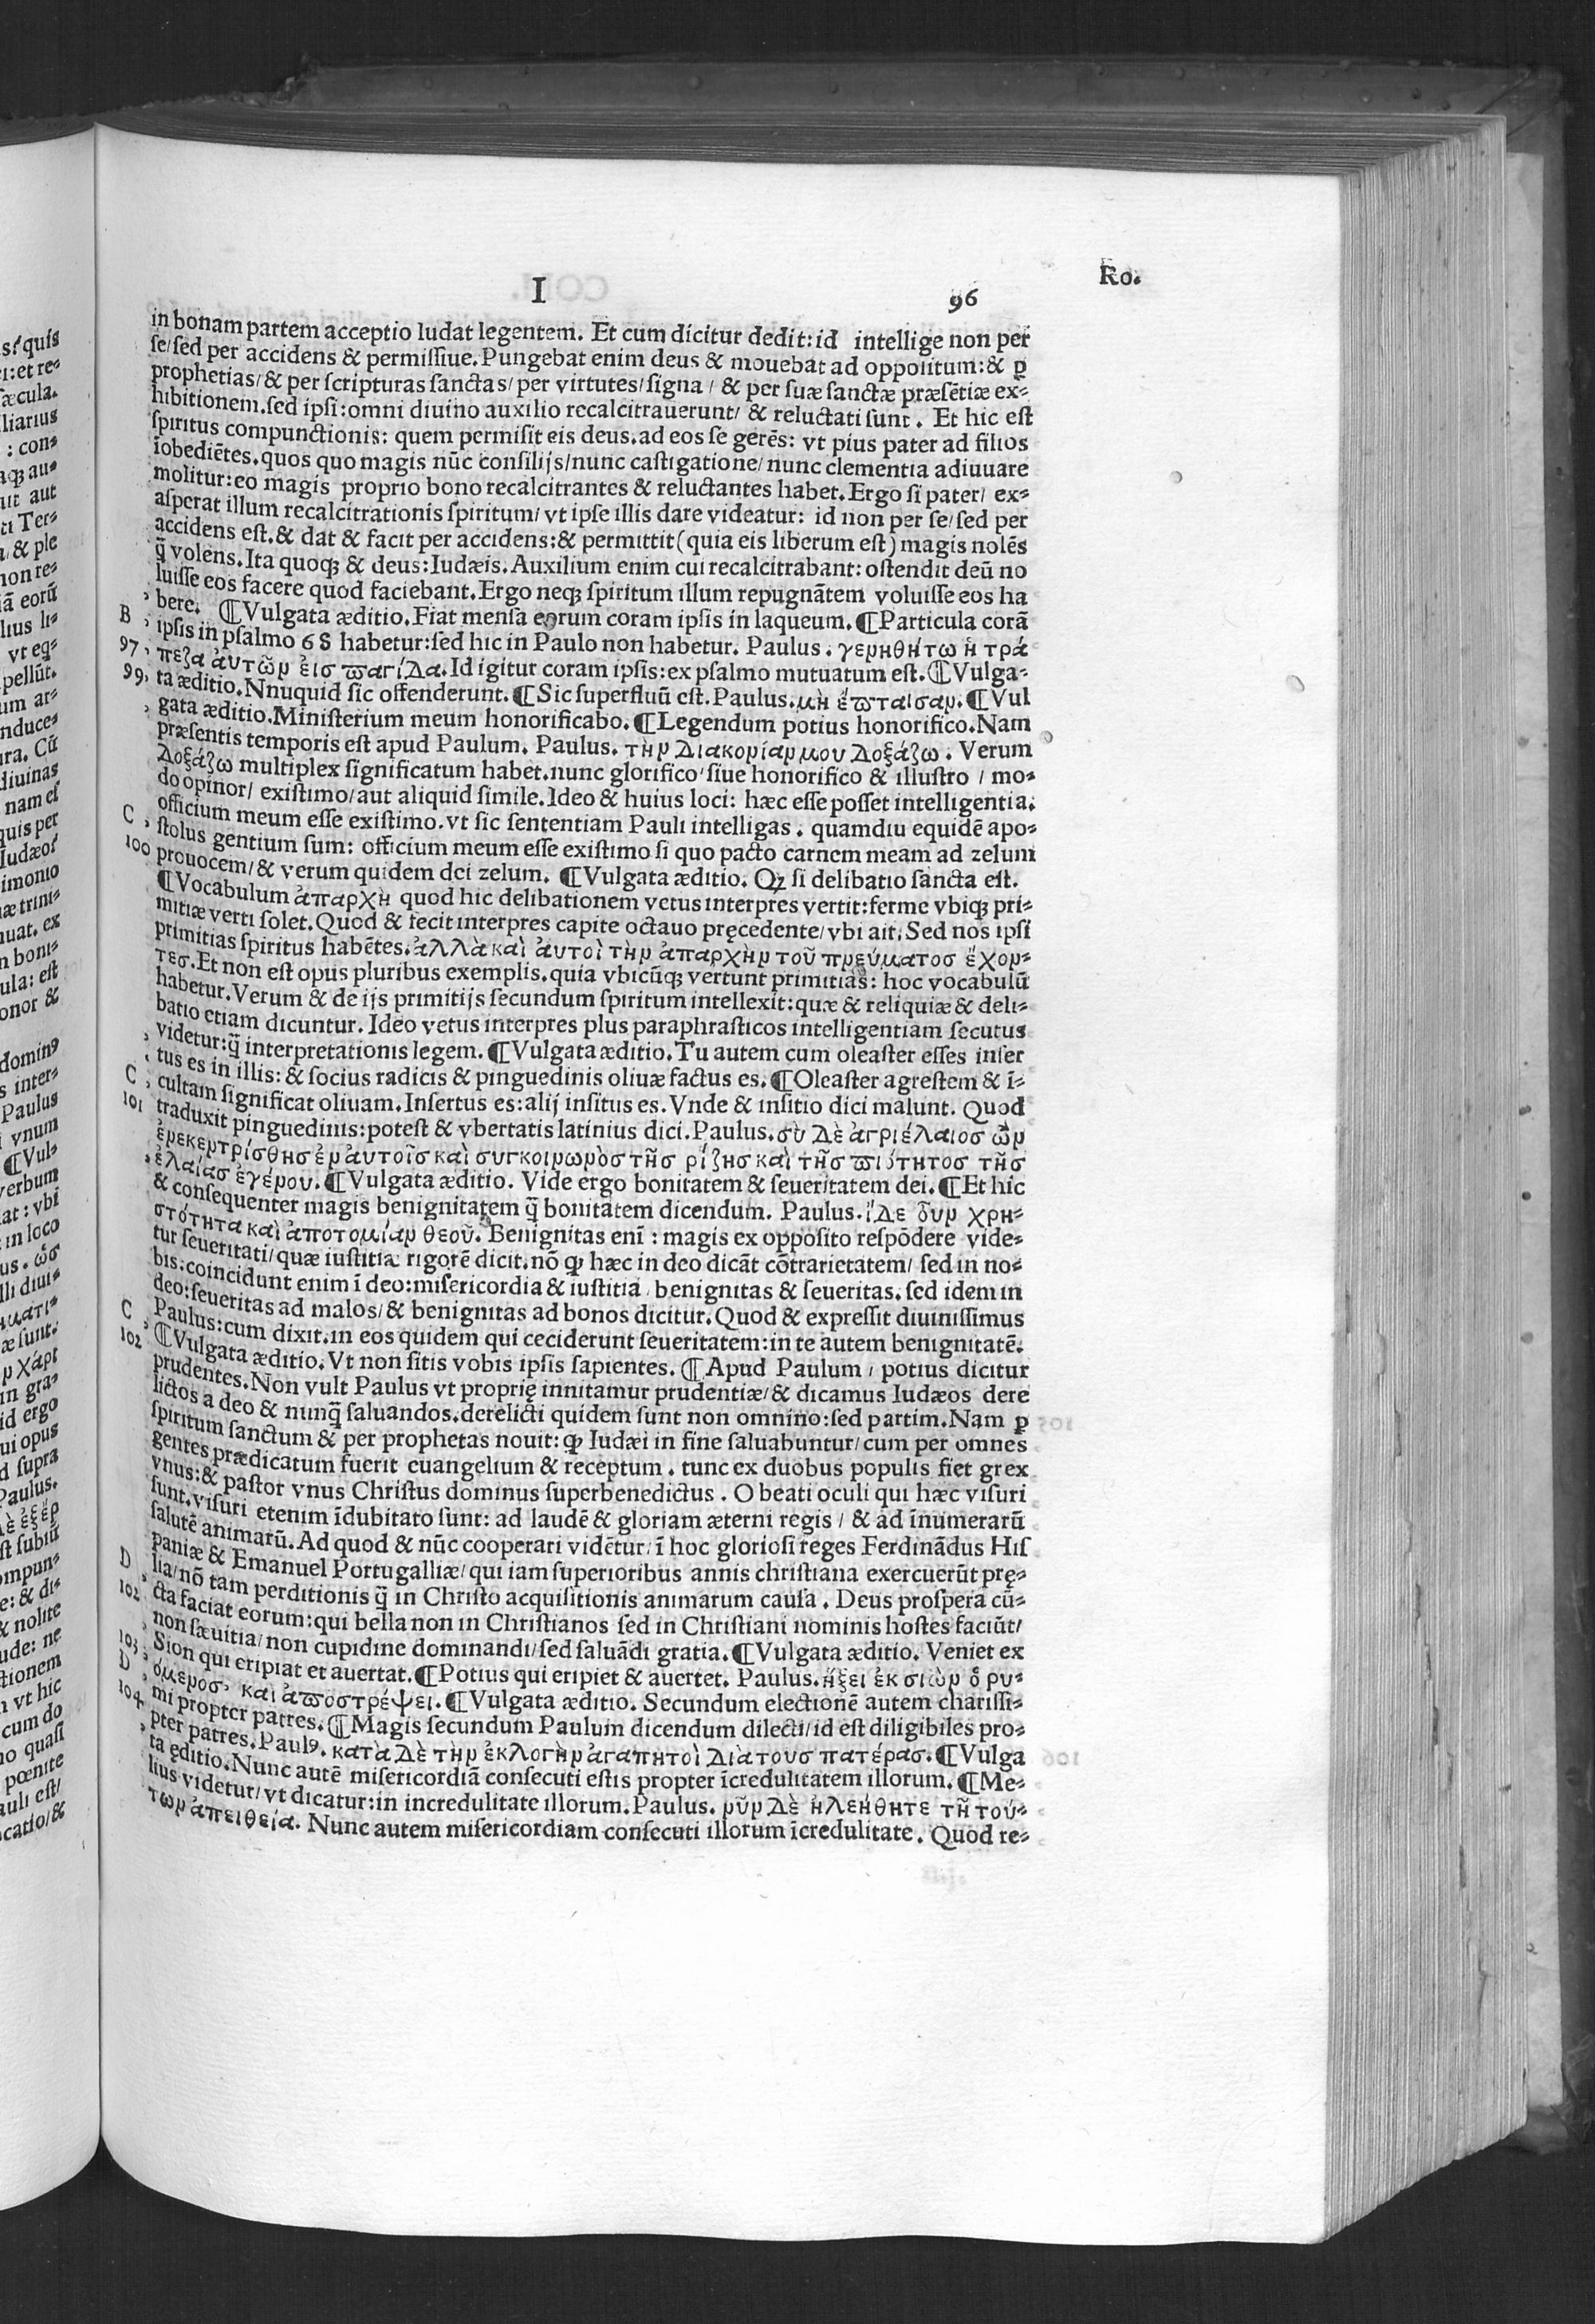 I 96 Ro.
in bonam partem acceptio ludat legentem. Et cum dicitur dedit: id intellige non per
se/sed per accidens & permissiue. Pungebat enim deus & mouebat ad oppositum: & ꝑ
prophetias/& per scripturas sanctas/per virtutes/signa/ & per suæ sanctæ præsẽtiæ ex-
hibitionem. sed ipsi: omni diuino auxilio recalcitrauerunt/ & reluctati sunt. Et hic est
spiritus compunctionis: quem permisit eis deus. ad eos se gerẽs: vt pius pater ad filios
ĩobediẽtes. quos quo magis nũc consilijs/nunc castigatione/nunc clementia adiuuare
molitur: eo magis proprio bono recalcitrantes & reluctantes habet. Ergo si pater/ ex-
asperat illum recalcitrationis spiritum/ vt ipse illis dare videatur: id non per se/sed per
accidens est. & dat & facit per accidens: & permittit (quia eis liberum est) magis nolẽs
q̃ volens. Ita quoqꝫ & deus: Iudæis. Auxilium enim cui recalcitrabant: ostendit deũ no
luisse eos facere quod faciebant. Ergo neqꝫ spiritum illum repugnãtem voluisse eos ha
bere. ¶Vulgata æditio. Fiat mensa eorum coram ipsis in laqueum. ¶Particula corã
B , ipsis in psalmo 68 habetur: sed hic in Paulo non habetur. Paulus. γενηθήτω ἡ τρά
97, πεζα ἀυτῶν ἐισ παγίδα. Id igitur coram ipsis: ex psalmo mutuatum est. ¶Vulga-
99, ta æditio. Nnuquid sic offenderunt. ¶Sic superfluũ est. Paulus. μὴ ἔπταισαν. ¶Vul
, gata æditio. Ministerium meum honorificabo. ¶Legendum potius honorifico. Nam
præsentis temporis est apud Paulum. Paulus. τὴν διακονίαν μου δοξάζω. Verum
δοξάζω multiplex significatum habet. nunc glorifico/siue honorifico & illustro / mo-
do opinor/ existimo/aut aliquid simile. Ideo & huius loci: hæc esse posset intelligentia.
officium meum esse existimo. vt sic sententiam Pauli intelligas. quamdiu equidẽ apo-
C , stolus gentium sum: officium meum esse existimo si quo pacto carnem meam ad zelum
100 prouocem/& verum quidem dei zelum. ¶Vulgata æditio. Qꝫ si delibatio sancta est.
¶Vocabulum ἀπαρχὴ quod hic delibationem vetus interpres vertit: ferme vbiqꝫ pri-
mitiæ verti solet. Quod & fecit interpres capite octauo pręcedente/vbi ait. Sed nos ipsi
primitias spiritus habẽtes. ἀλλὰ καὶ ἀυτοὶ τὴν ἀπαρχὴν τοῦ πνεύματοσ ἔχον-
τεσ. Et non est opus pluribus exemplis. quia vbicũqꝫ vertunt primitias: hoc vocabulũ
habetur. Verum & de ijs primitijs secundum spiritum intellexit: quæ & reliquiæ & deli-
batio etiam dicuntur. Ideo vetus interpres plus paraphrasticos intelligentiam secutus
, videtur: q̃ interpretationis legem. ¶Vulgata æditio. Tu autem cum oleaster esses inser
, tus es in illis: & socius radicis & pinguedinis oliuæ factus es. ¶Oleaster agrestem & ĩ-
C , cultam significat oliuam. Insertus es: alij insitus es. Vnde & insitio dici malunt. Quod
101 traduxit pinguedinis: potest & vbertatis latinius dici. Paulus. σὺ δὲ ἀγριέλαιοσ ὢν
ἐνεκεντρίσθησ ἐν ἀυτοῖσ καὶ συγκοινωνὸσ τῆσ ρίζησ καὶ τῆσ πιότητοσ τῆσ
, ἐλαίασ ἐγένου. ¶Vulgata æditio. Vide ergo bonitatem & seueritatem dei. ¶Et hic
& consequenter magis benignitatem q̃ bonitatem dicendum. Paulus. ἴδε ὂυν χρη-
στότητα καὶ ἀποτομίαν θεοῦ. Benignitas enĩ: magis ex opposito respõdere vide-
tur seueritati/quæ iustitiæ rigorẽ dicit. nõ ꝙ hæc in deo dicãt cõtrarietatem/ sed in no-
bis: coincidunt enim ĩ deo: misericordia & iustitia, benignitas & seueritas. sed idem in
deo: seueritas ad malos/ & benignitas ad bonos dicitur. Quod & expressit diuinissimus
C , Paulus: cum dixit. in eos quidem qui ceciderunt seueritatem: in te autem benignitatẽ.
102 ¶Vulgata æditio. Vt non sitis vobis ipsis sapientes. ¶Apud Paulum / potius dicitur
prudentes. Non vult Paulus vt proprię innitamur prudentiæ/& dicamus Iudæos dere
lictos a deo & nunq̃ saluandos. derelicti quidem sunt non omnino: sed partim. Nam ꝑ
spiritum sanctum & per prophetas nouit: ꝙ Iudæi in fine saluabuntur/cum per omnes
gentes prædicatum fuerit euangelium & receptum. tunc ex duobus populis fiet grex
vnus: & pastor vnus Christus dominus superbenedictus. O beati oculi qui hæc visuri
sunt. visuri etenim ĩdubitato sunt: ad laudẽ & gloriam æterni regis / & ad ĩnumerarũ
salutẽ animarũ. Ad quod & nũc cooperari vidẽtur/ ĩ hoc gloriosi reges Ferdinãdus His
paniæ & Emanuel Portugalliæ/ qui iam superioribus annis christiana exercuerũt prę-
D lia/nõ tam perditionis q̃ in Christo acquisitionis animarum causa. Deus prospera cũ-
102 , cta faciat eorum: qui bella non in Christianos sed in Christiani nominis hostes faciũt/
, non sæuitia/non cupidine dominandi/sed saluãdi gratia. ¶Vulgata æditio. Veniet ex
103, Sion qui eripiat et auertat. ¶Potius qui eripiet & auertet. Paulus. ἥξει ἐκ σιὼν ὁ ρυ-
D , όμενοσ, καὶ ἀποστρέψει. ¶Vulgata æditio. Secundum electionẽ autem charissi-
104 mi propter patres. ¶Magis secundum Paulum dicendum dilecti/id est diligibiles pro-
, pter patres. Paulꝰ. κατὰ δὲ τὴν ἐκλογὴν ἀγαπητοὶ διὰ τουσ πατέρασ. ¶Vulga
, ta ęditio. Nunc autẽ misericordiã consecuti estis propter ĩcredulitatem illorum. ¶Me-
lius videtur/ vt dicatur: in incredulitate illorum. Paulus. νῦν δὲ ἠλεήθητε τῆ τού-
των ἀπειθεία. Nunc autem misericordiam consecuti illorum ĩcredulitate. Quod re-